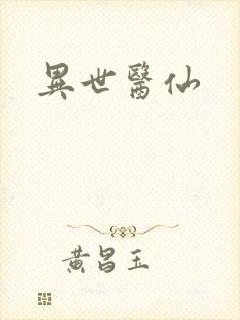 異世醫仙
黃昌玉